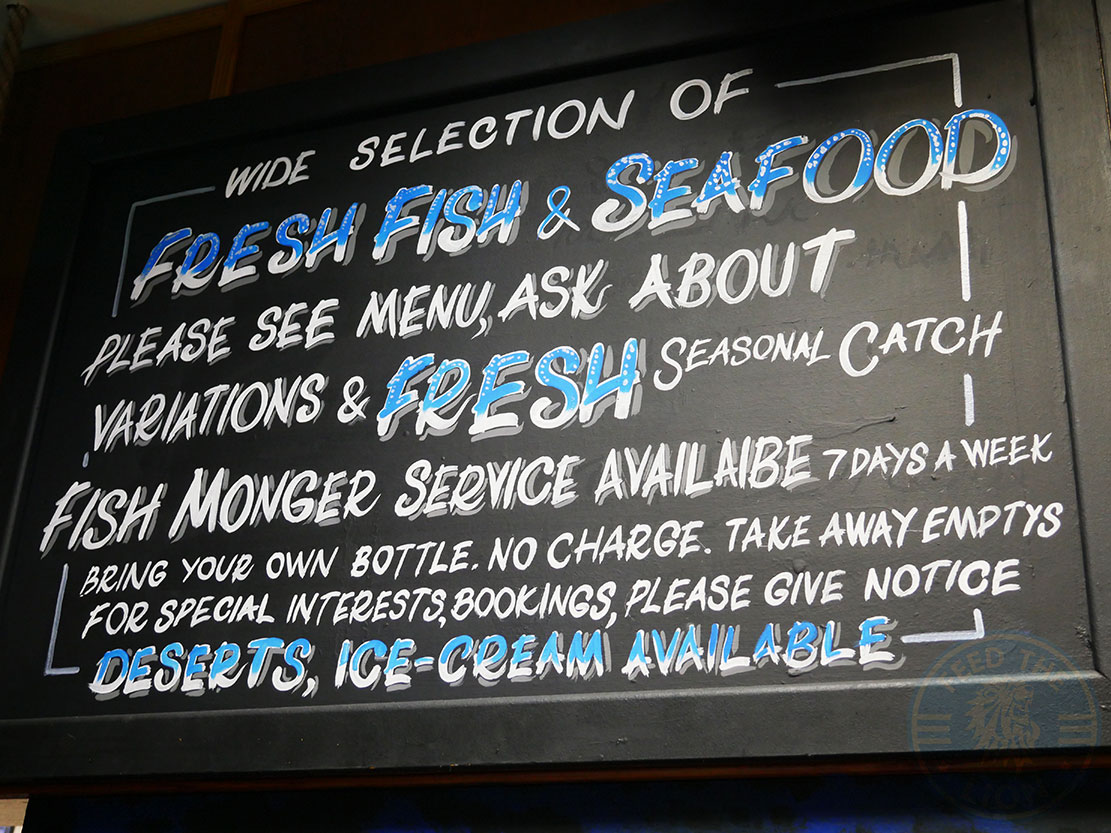 WIDE SELECTION OF
FRESH FISH & SEAFOOD
PLEASE SEE MENU, ASK ABOUT
VARIATIONS & FRESH SEASONAL CATCH
FISH MONGER SERVICE AVAILAIBE 7 DAYS A WEEK
BRING YOUR OWN BOTTLE. NO CHARGE. TAKE AWAY EMPTYS
FOR SPECIAL INTERESTS, BOOKINGS, PLEASE GIVE NOTICE
DESERTS, ICE-CREAM AVAILABLE
FEED THE
LION